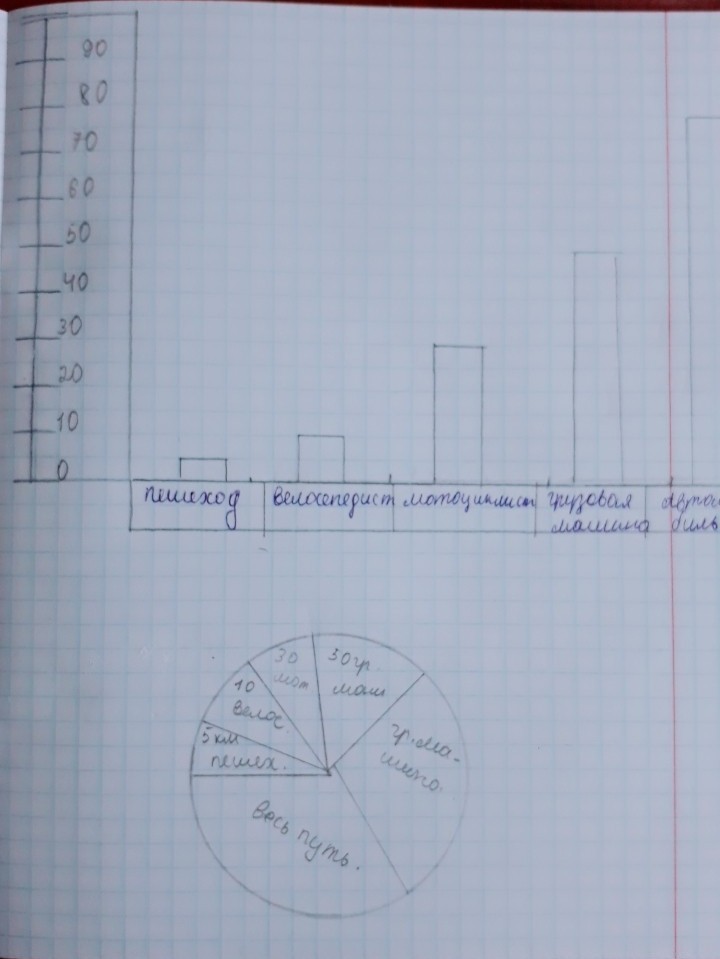 90
80
70
60
50
40
30
20
10
0
пешеход
велосепедист
мотоциклист
грузовая
машина
30
мот
50гр.
маш
10
велос.
5 км
пешех.
гр.ма-
шина.
Весь путь.